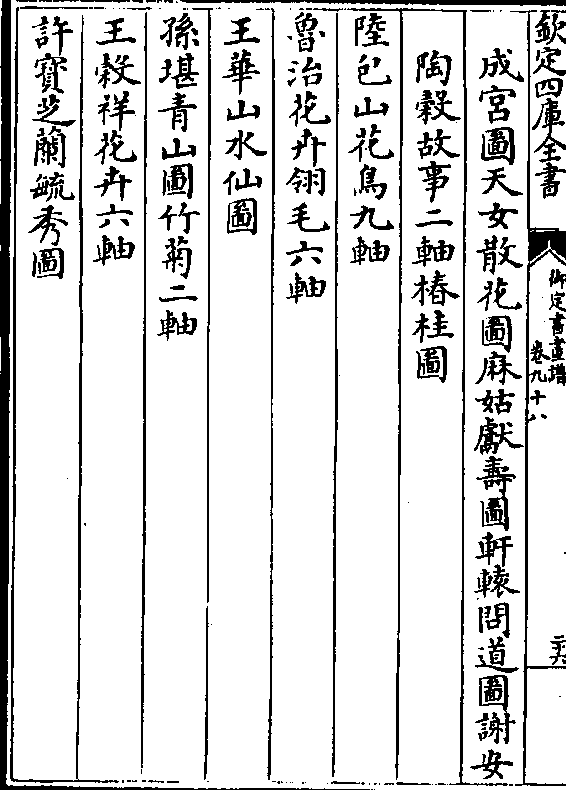 欽定四庫全書
御定書畫譜
卷九十八
二六
成宮圖天女散花圖麻姑獻壽圖軒轅問道圖謝安
陶穀故事二軸椿桂圖
陸包山花鳥九軸
魯治花卉翎毛六軸
王華山水仙圖
孫堪青山圖竹菊二軸
王穀祥花卉六軸
許寶芝蘭毓秀圖